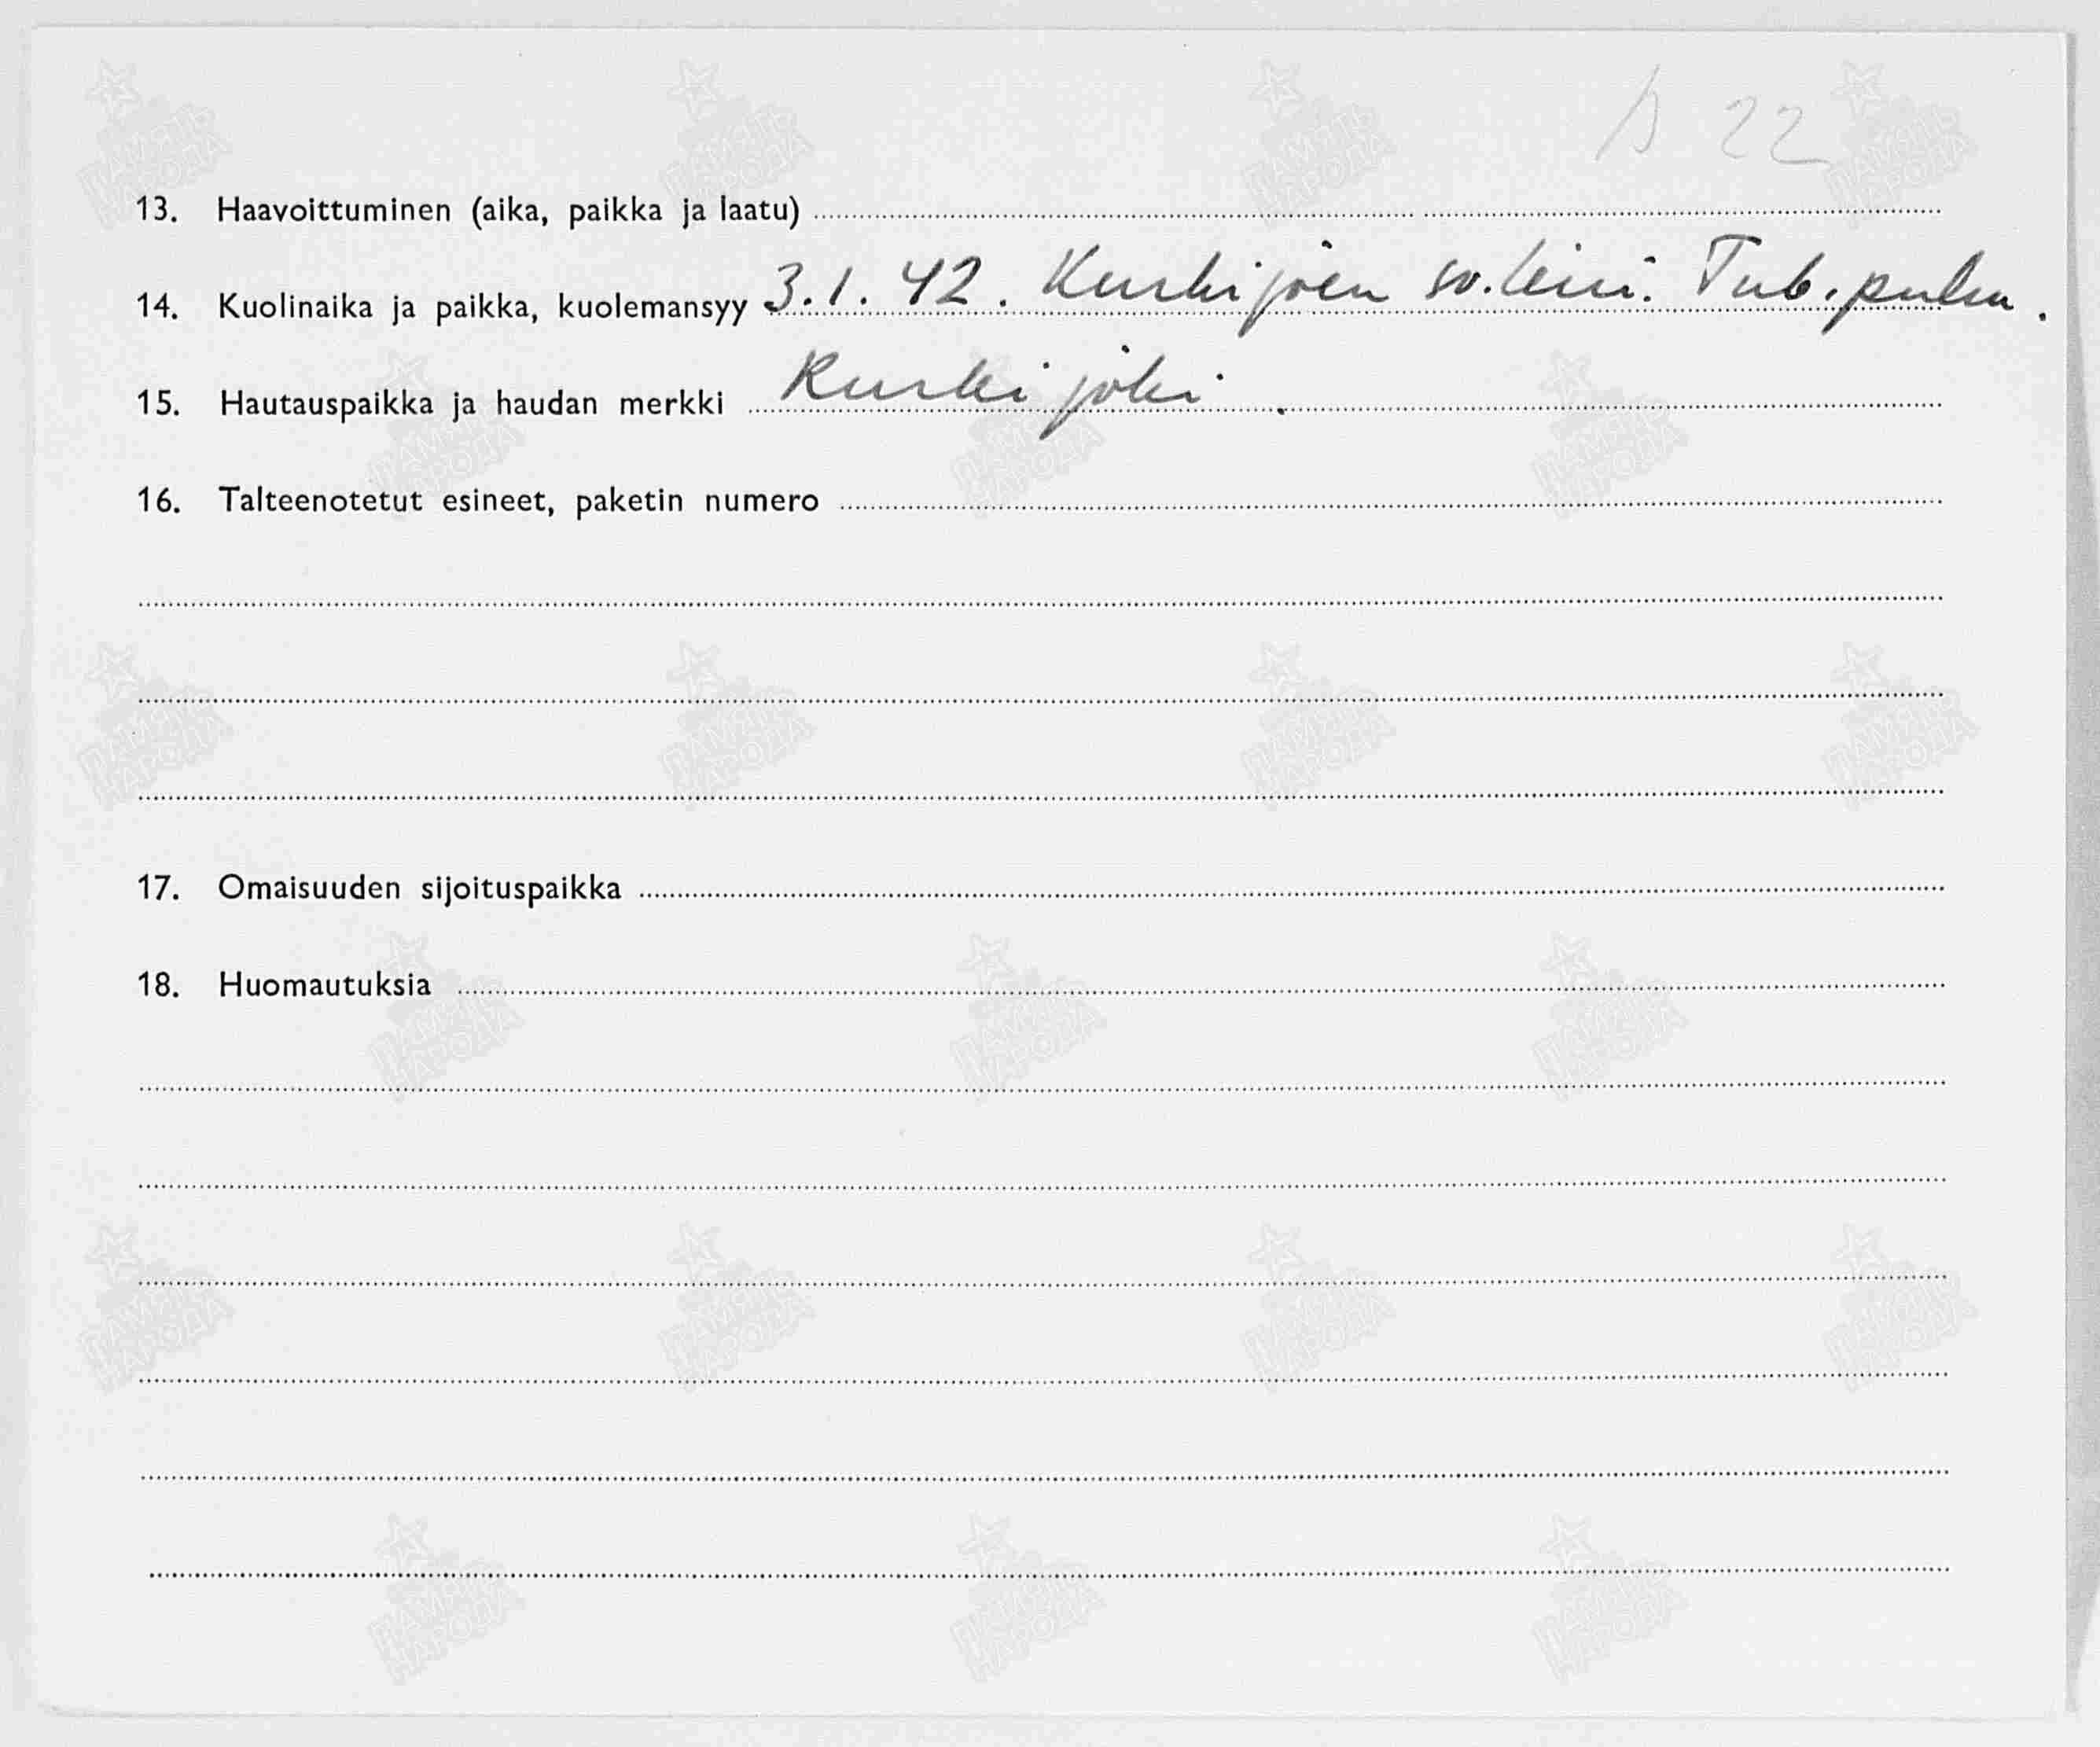 22
13. Haavoittuminen (aika, paikka ja laatu)
14. Kuolinaika ja paikka, kuolemansyy 3.1.42. Kurkijoen so.leiri. Tub. pulm.
15. Hautauspaikka ja haudan merkki Kurkijoki.
16. Talteenotetut esineet, paketin numero
17. Omaisuuden sijoituspaikka
18. Huomautuksia
ПАМЯТЬ НАРОДА